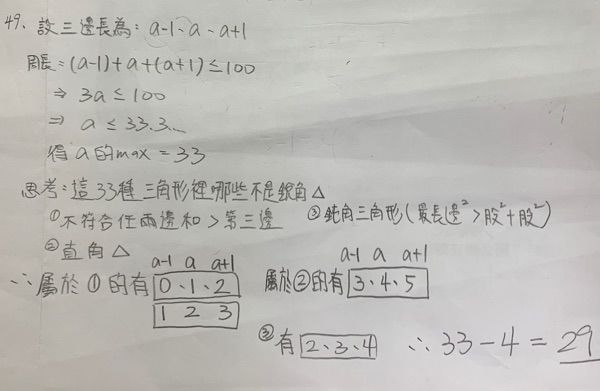 49. 設三邊長為：a-1、a、a+1
周長=(a-1)+a+(a+1)≤100
⇒ 3a≤100
⇒ a≤33.3...
得 a的max=33
思考：這33種三角形裡哪些不是銳角△
①不符合任兩邊和>第三邊 ③鈍角三角形(最長邊²>股²+股²)
②直角△
a-1 a a+1 a-1 a a+1
∴屬於①的有 0、1、2 屬於②的有 3、4、5
1 2 3
③有 2、3、4 ∴33-4=29